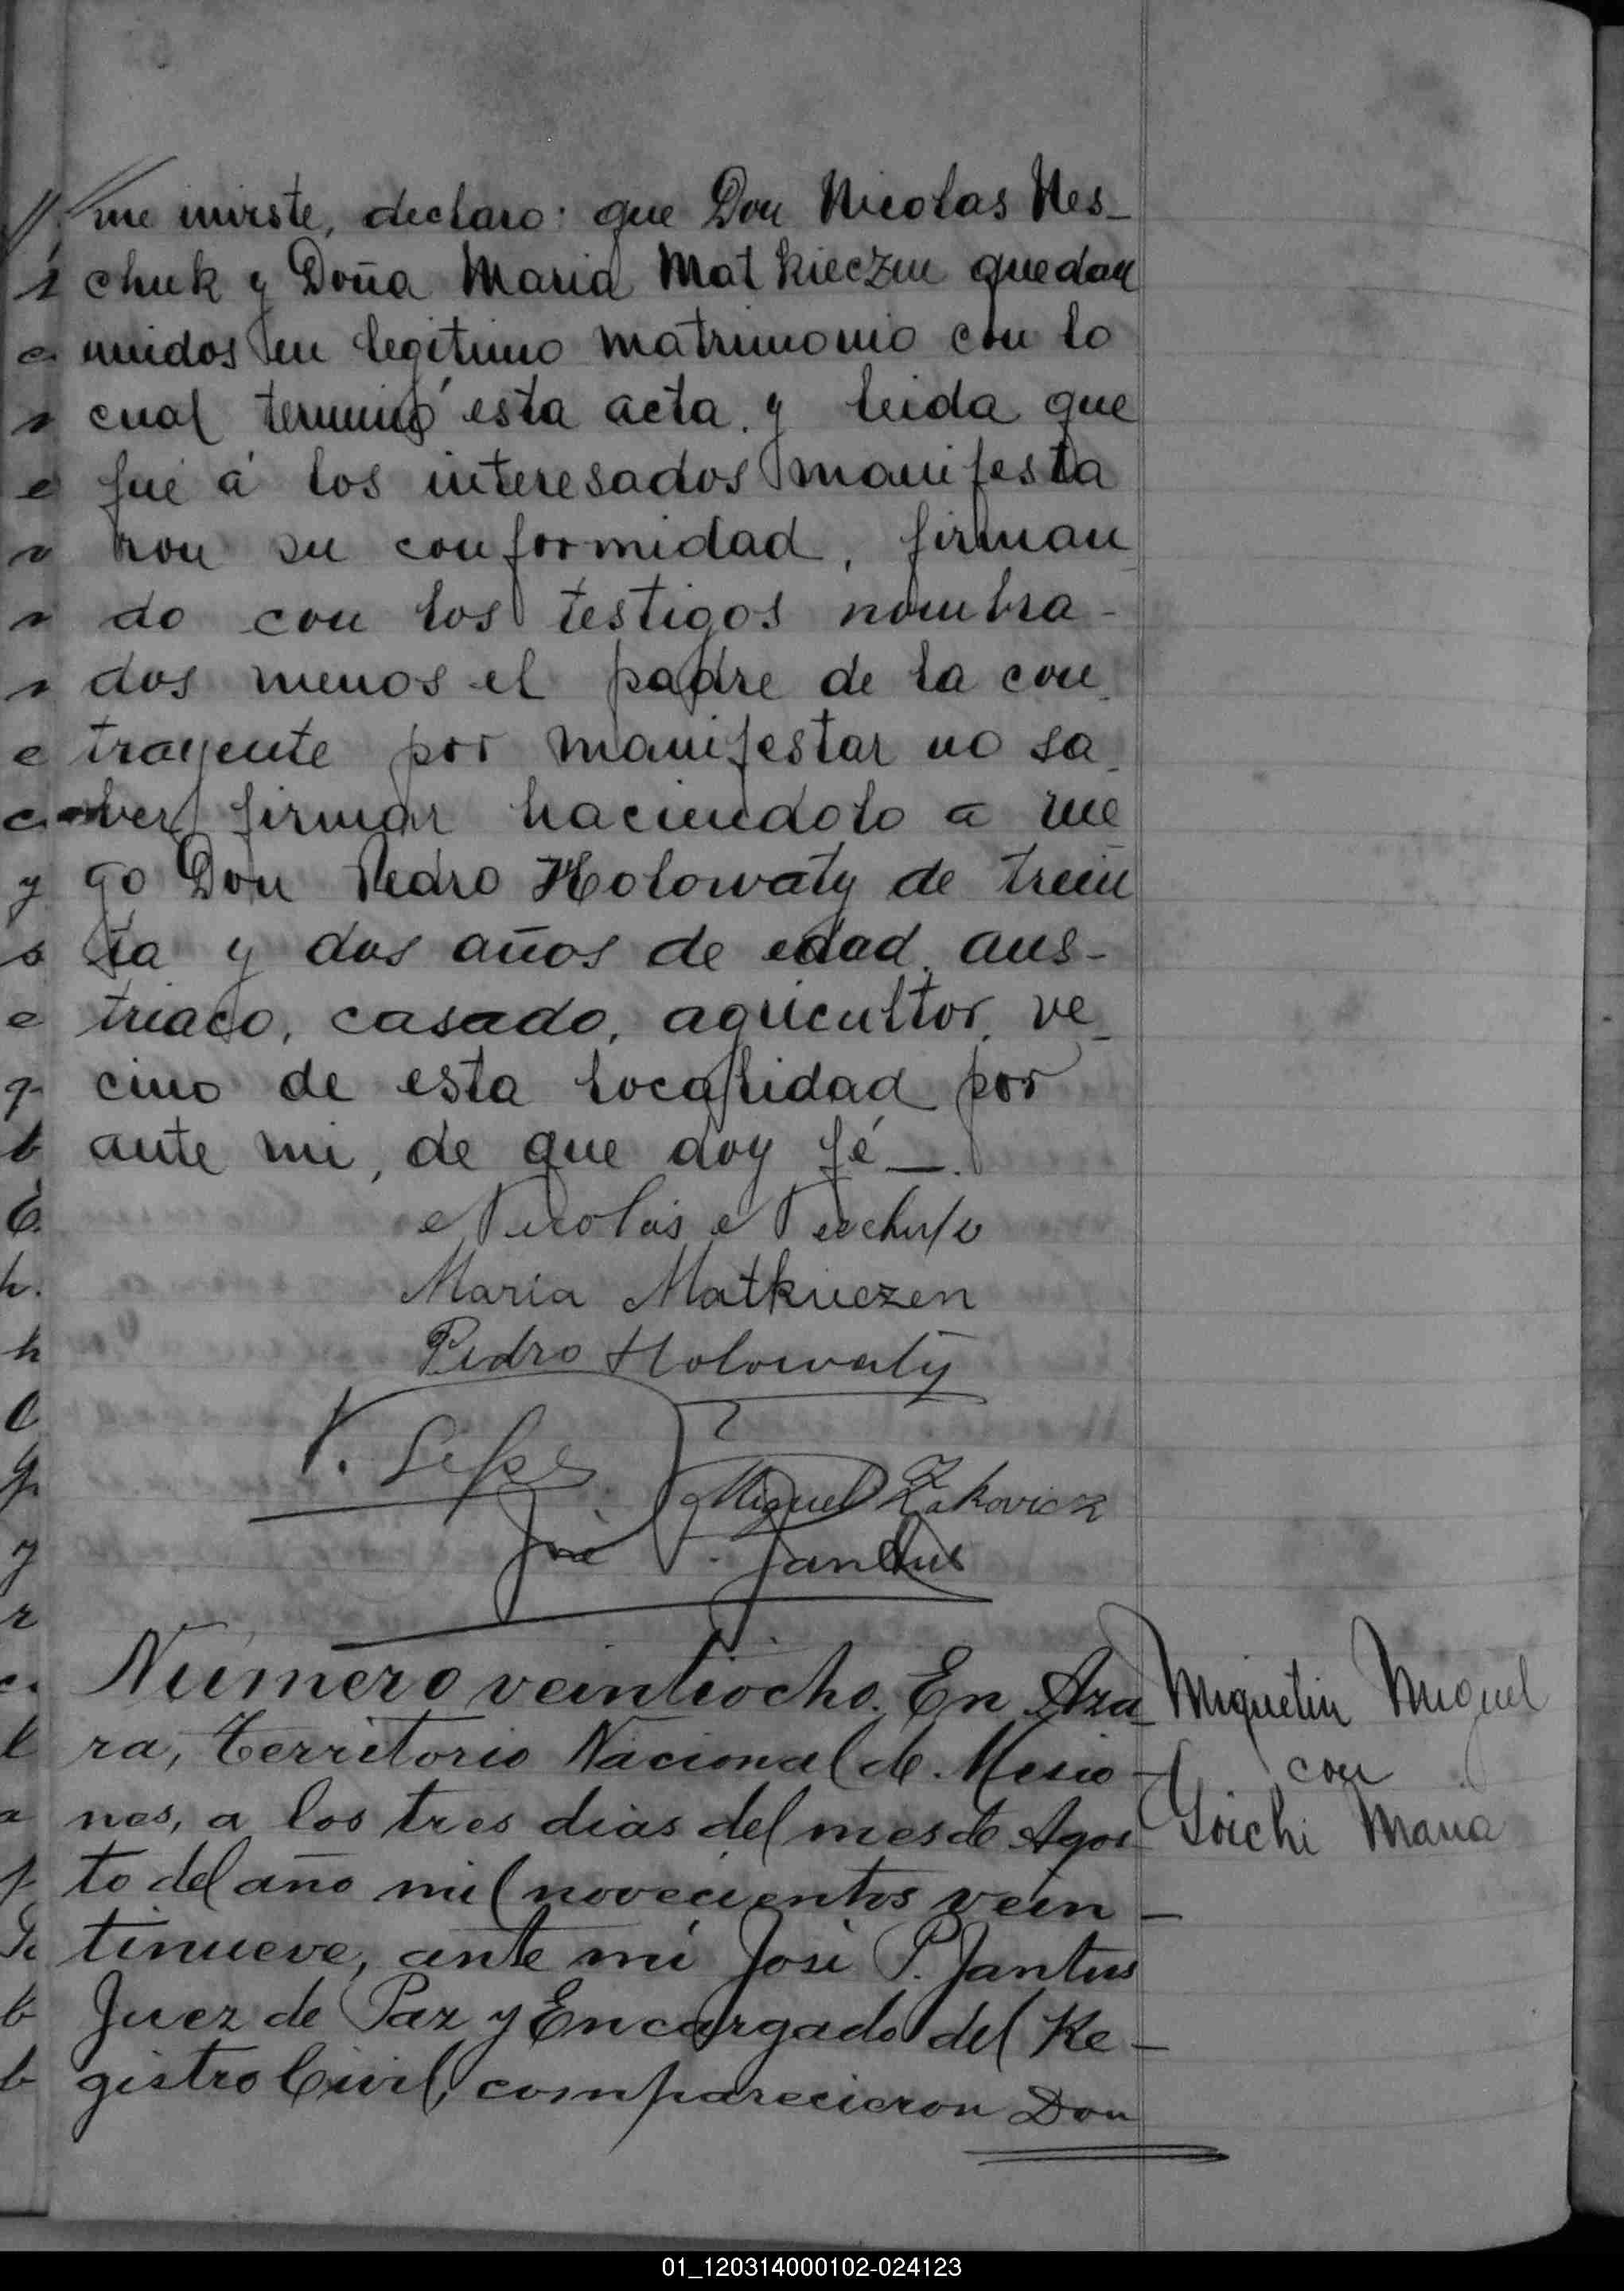 me inviste, declaro: que Don Nicolas Nes-
chuk y Doña Maria Matkieczen quedan
unidos en legitimo matrimonio con lo
cual terminó esta acta. y leida que
fué á los interesados manifesta
ron su conformidad, firman
do con los testigos nombra-
dos menos el padre de la con
trayente por manifestar no sa
ber firmar haciendolo a rue
go Don Pedro Holowaty de trein
ta y dos años de edad, aus-
triaco, casado, agricultor, ve
cino de esta localidad por
ante mi, de que doy fé—.
Nicolás
Maria Matkieczen
Pedro Holowaty
Miguel Zakovicz
José P. Jantus
Número veintiocho. En Aza
ra, Territorio Nacional de Misio-
nes, a los tres dias del mes de Agos
to del año mil novecientos vein-
tinueve, ante mí José P. Jantus
Juez de Paz y Encargado del Re-
gistro Civil, comparecieron Don
Miguel
con
Maria
01_120314000102-024123